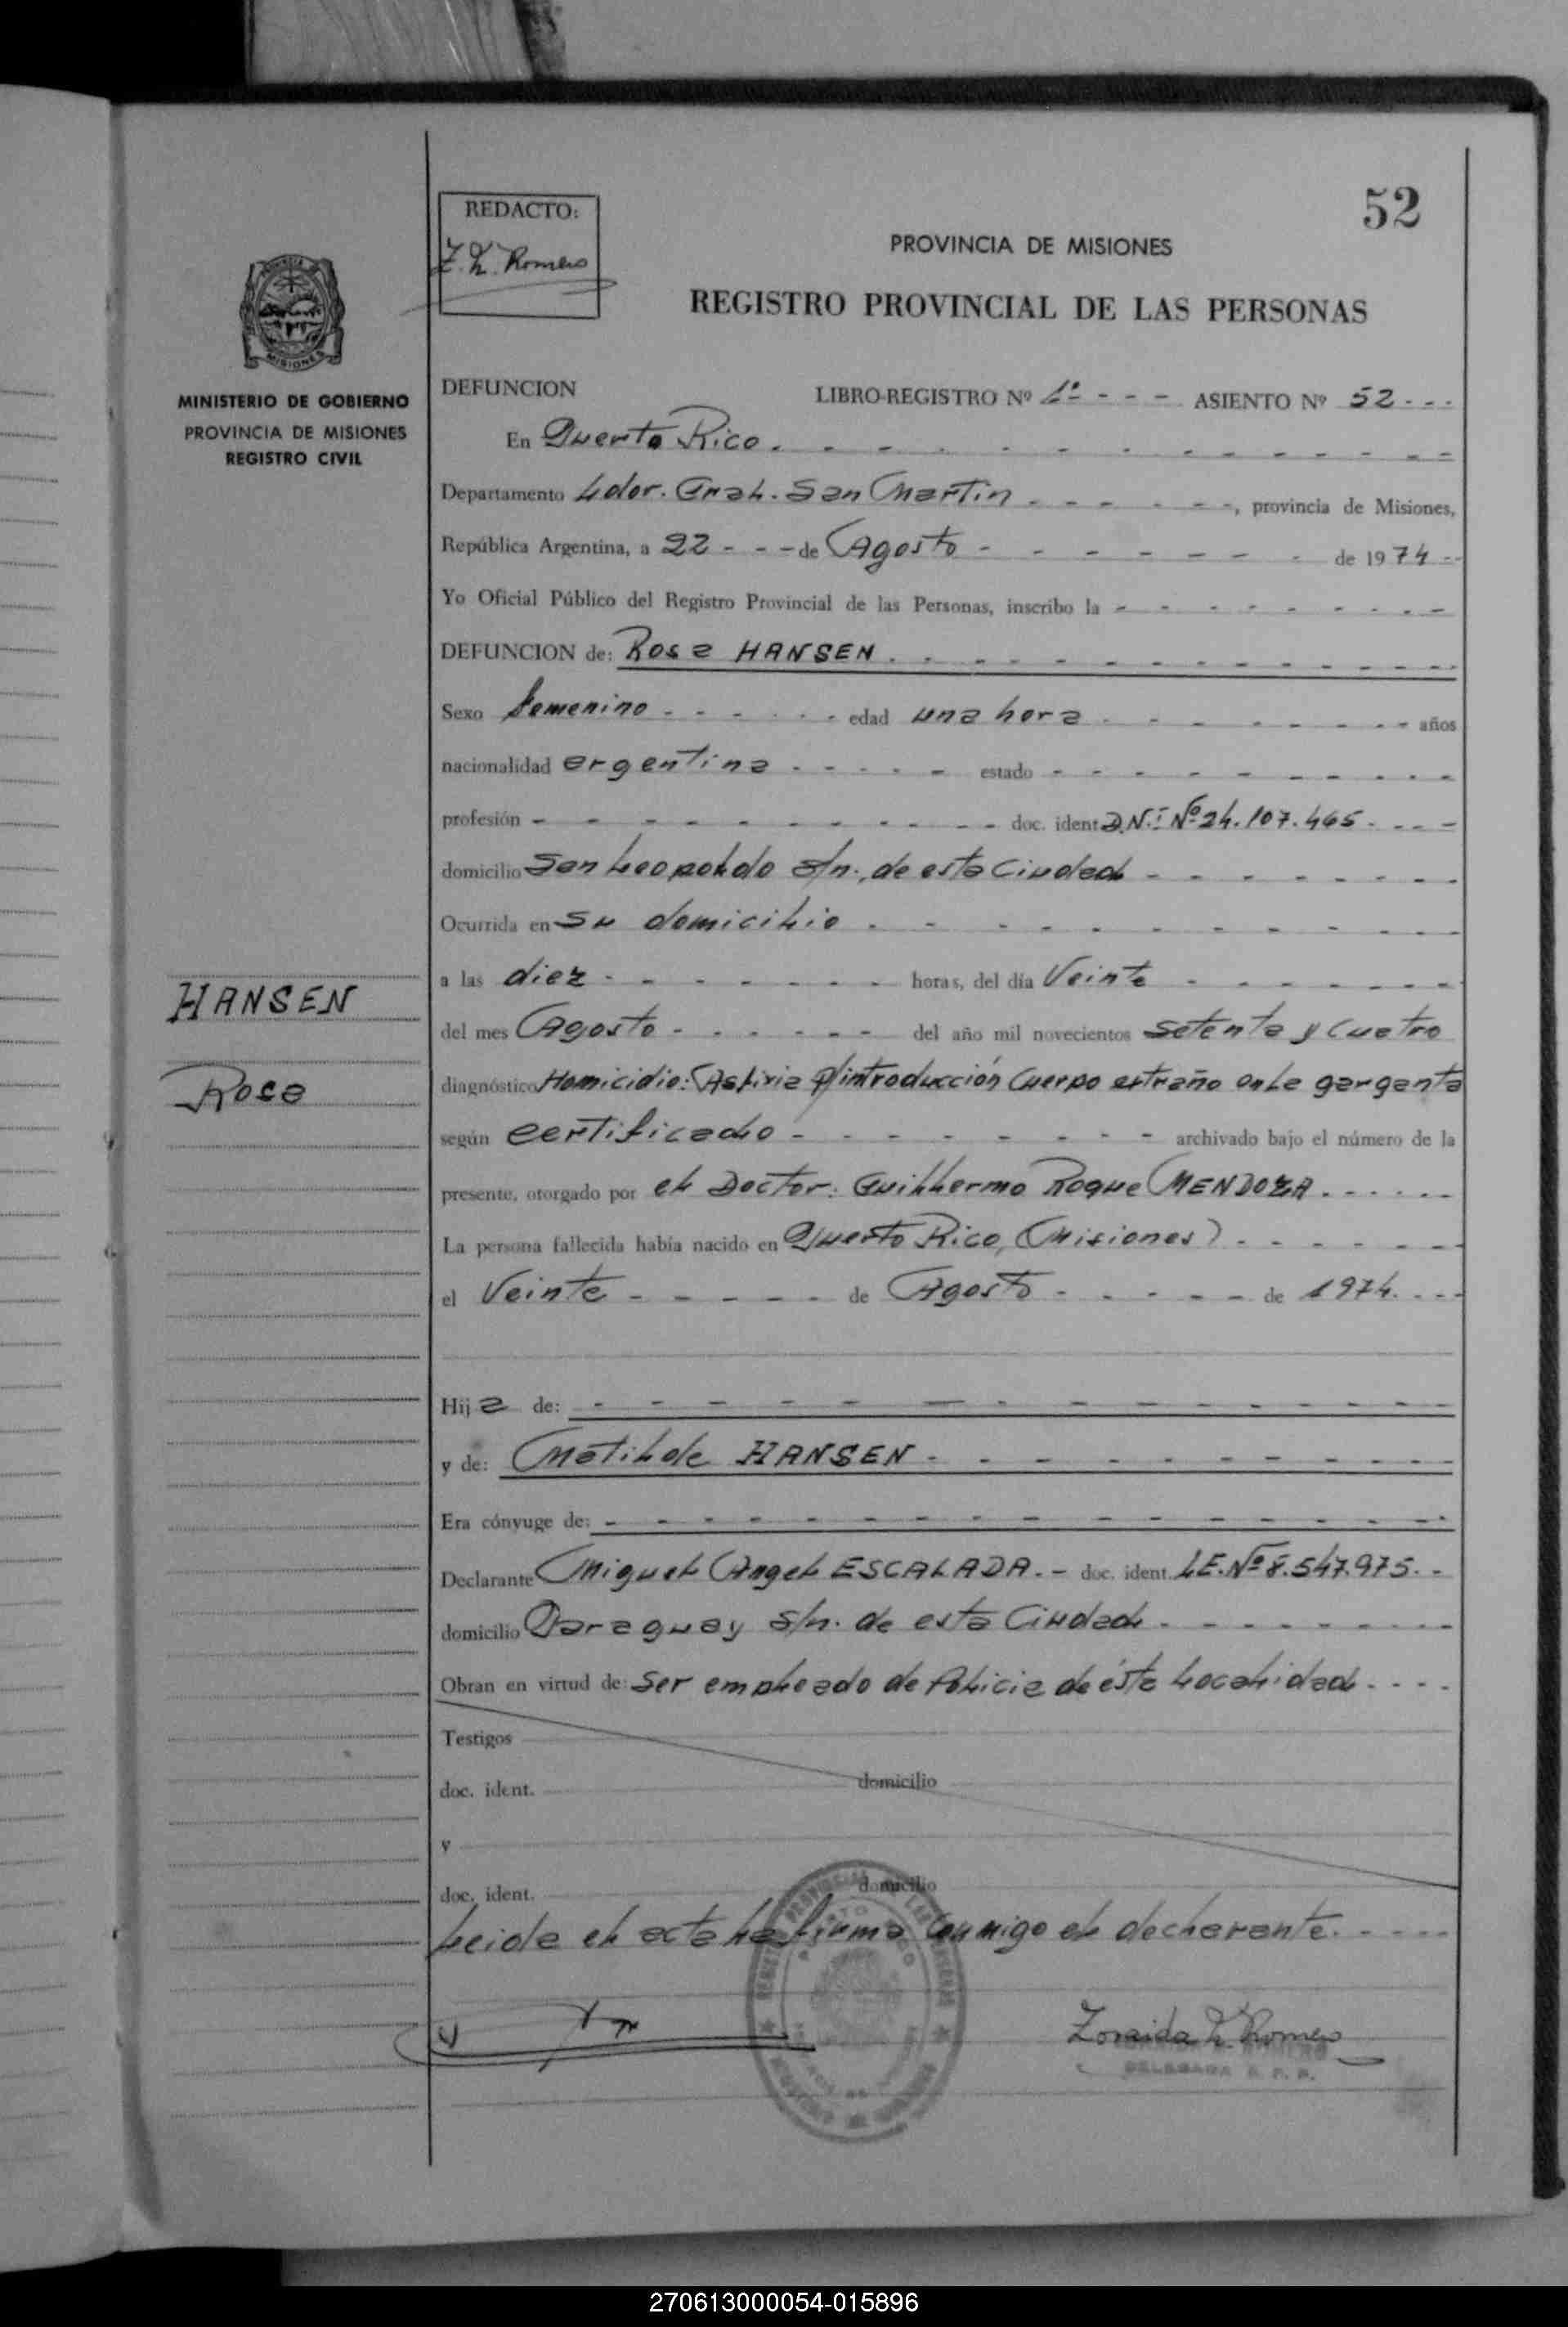 52
REDACTO:
Z. Z. Romero
PROVINCIA DE MISIONES
REGISTRO PROVINCIAL DE LAS PERSONAS
MISIONES
MINISTERIO DE GOBIERNO
PROVINCIA DE MISIONES
REGISTRO CIVIL
DEFUNCION LIBRO-REGISTRO Nº 1º - - - ASIENTO Nº 52 - - -
En Puerto Rico.
Departamento Ldor. Gral. San Martin - - - - - -, provincia de Misiones,
República Argentina, a 22 - - - de Agosto - - - - - - - de 1974 - -
Yo Oficial Público del Registro Provincial de las Personas, inscribo la
DEFUNCION de: Rosa HANSEN.
Sexo femenino - - - - - - edad una hora - - - - - - - años
nacionalidad argentina - - - - - estado - - - - - - - - -
profesión - - - - - - - - - - doc. ident. D.N.I Nº 24.107.465. - - -
domicilio San Leopoldo s/n., de esta Ciudad
Ocurrida en su domicilio
a las diez - - - - - - - horas, del día Veinte
del mes Agosto - - - - - - del año mil novecientos setenta y cuatro
diagnóstico Homicidio: Asfixia p/introducción Cuerpo extraño en la garganta
según certificado - - - - - - - - archivado bajo el número de la
presente, otorgado por el Doctor: Guillermo Roque MENDOZA.
La persona fallecida había nacido en Puerto Rico, (Misiones)
el Veinte - - - - - de Agosto - - - - - de 1974. - - -
Hija de:
y de: Matilde HANSEN
Era cónyuge de:
Declarante Miguel Angel ESCALADA. - doc. ident. L.E. Nº 8.547.975. -
domicilio Paraguay s/n. de esta Ciudad
Obran en virtud de: Ser empleado de Policia de ésta Localidad
Testigos
doc. ident. domicilio
y
doc. ident. domicilio
Leida el acta la firma conmigo el declarante.
Zoraida Z. Romero
DELEGADA R. P. P.
HANSEN
Rosa
270613000054-015896